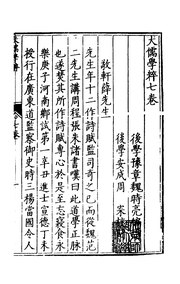 大儒學粹七卷
後學豫章魏時亮
後學安成周寀
敬軒薛先生
先生年十二作詩賦監司奇之已而從魏范
二先生講周程張朱諸書嘆曰此道學正脉
也遂焚其所作詩賦專心於是至忘寢食永
樂庚子河南鄉試第一辛丑進士宣德丁未
授行在廣東道監察御史時三楊當國令人